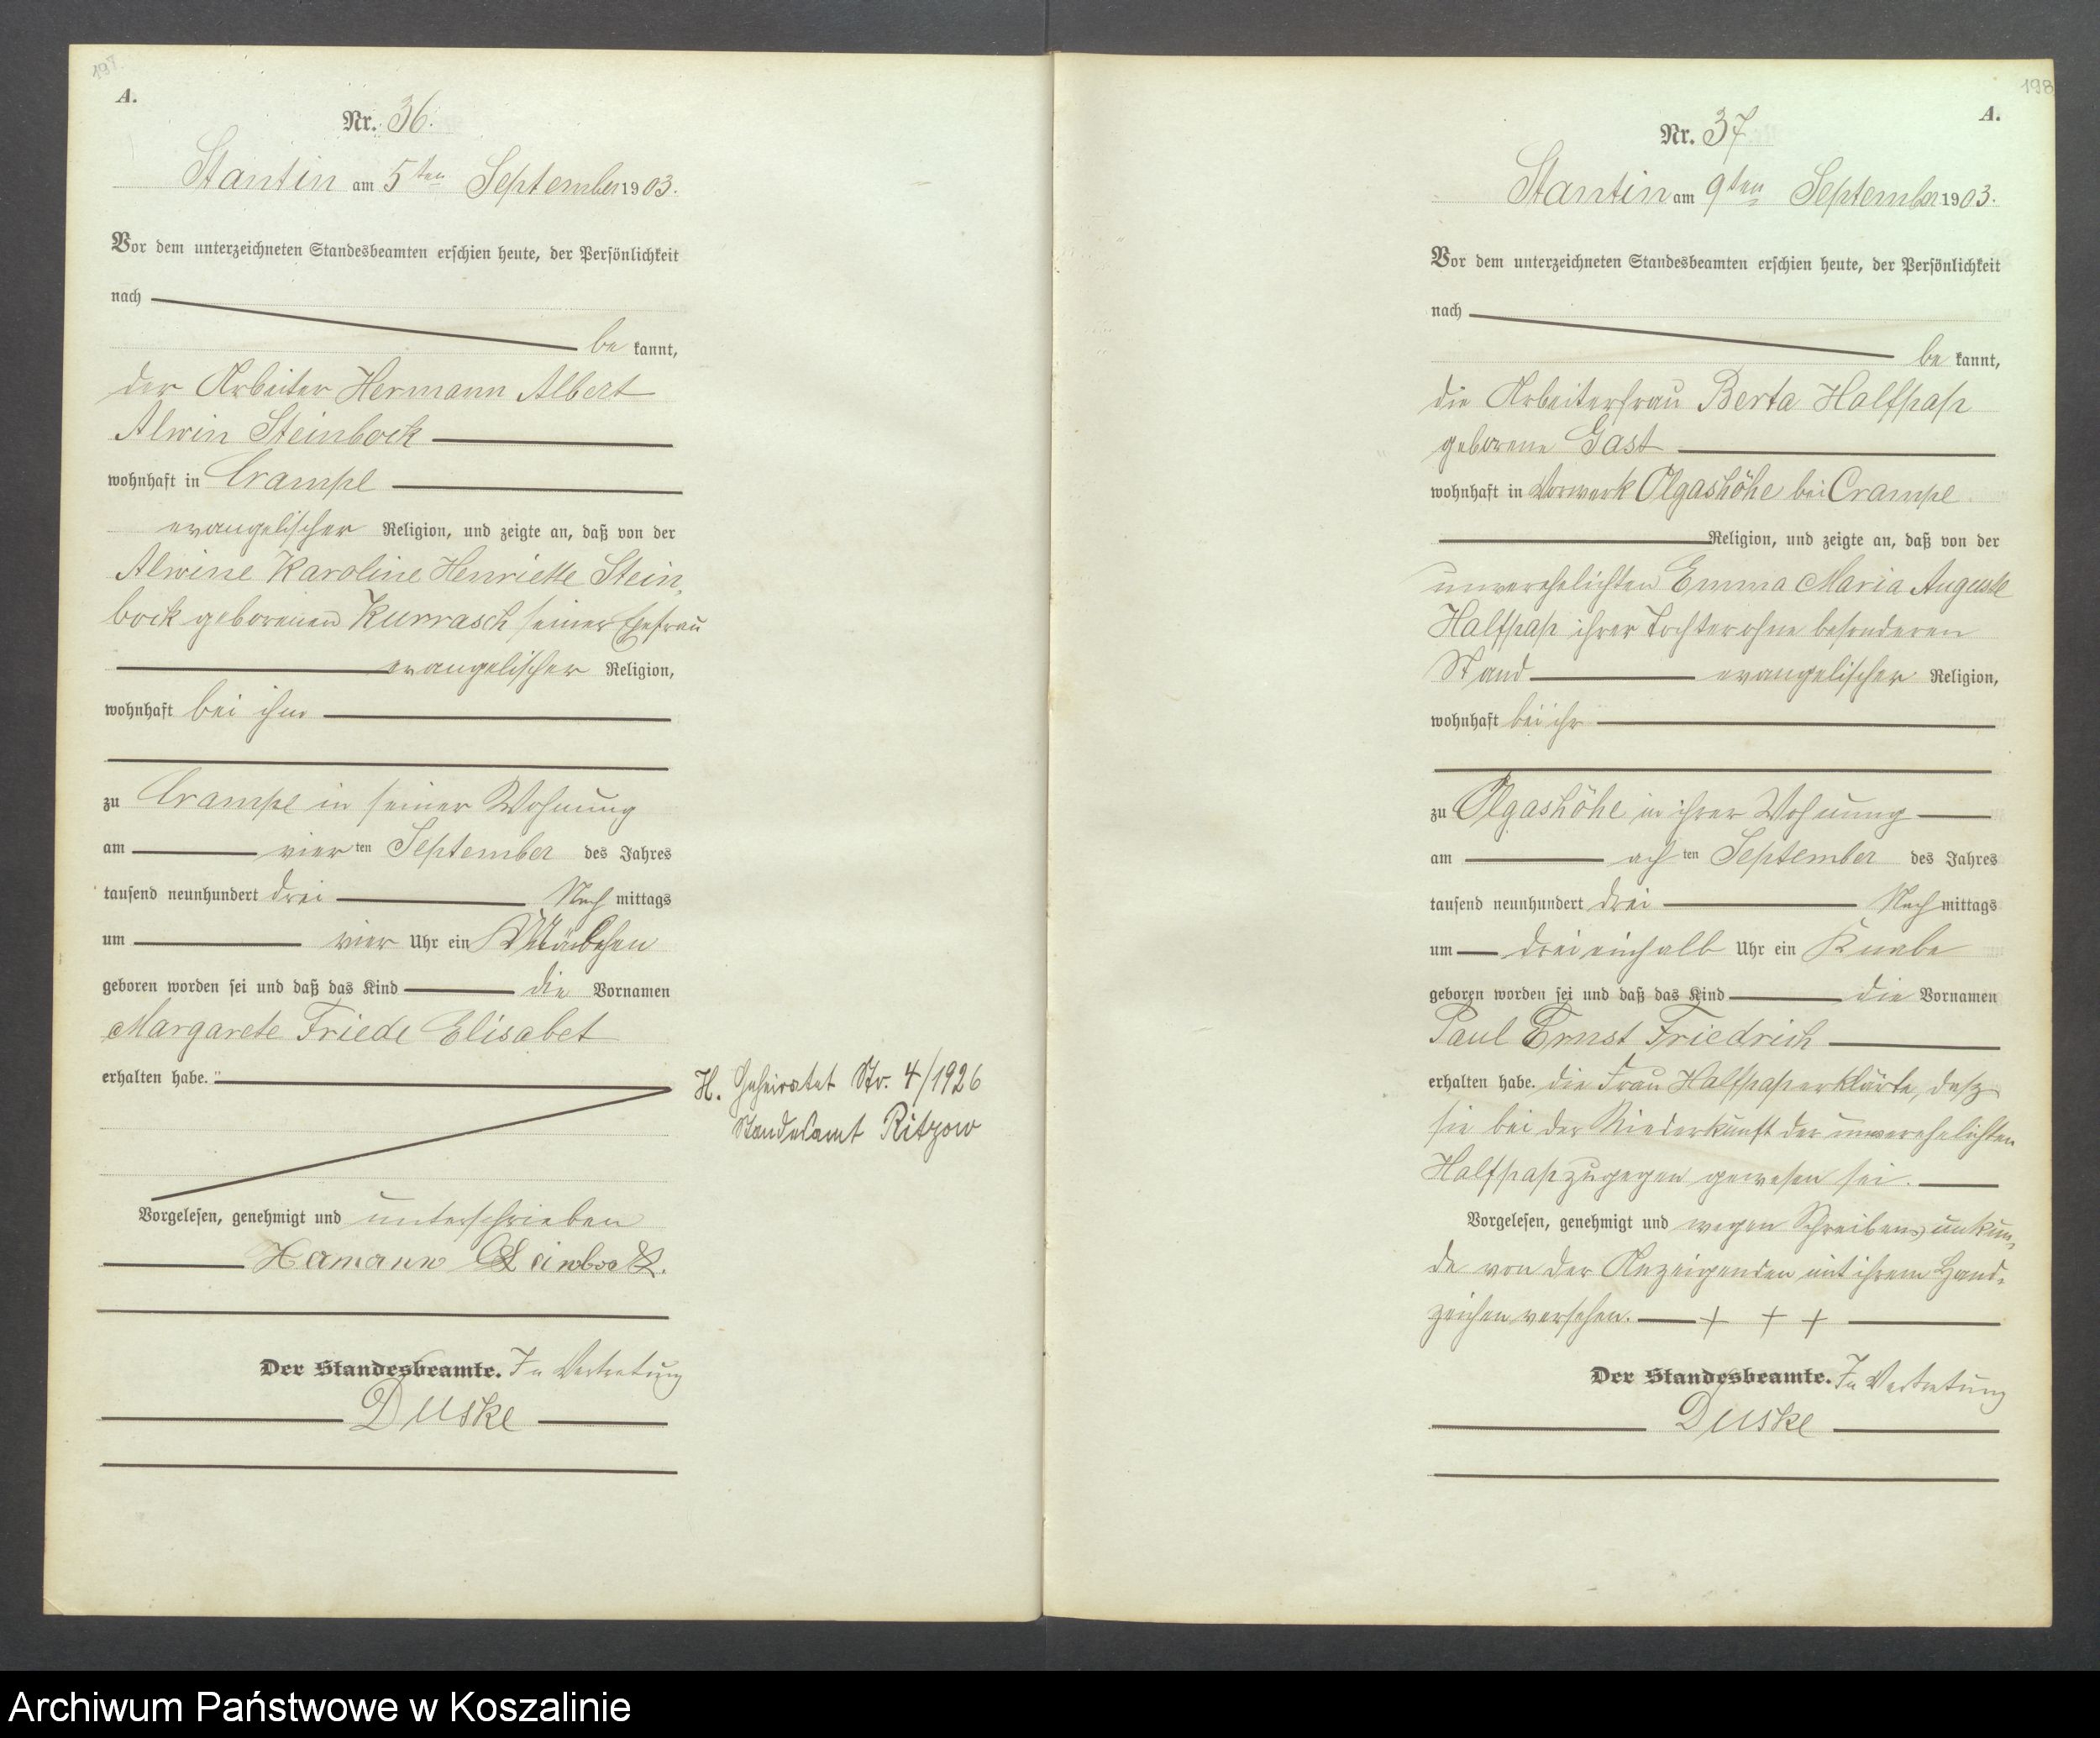 197.
A.
Nr. 36.
Stantin am 5ten September 1903.
Vor dem unterzeichneten Standesbeamten erschien heute, der Persönlichkeit
nach
be kannt,
der Arbeiter Hermann Albert
Alwin Steinbock
wohnhaft in Crampe
evangelischer Religion, und zeigte an, daß von der
Alwine Karoline Henriette Stein-
bock geborenen Kurrasch seiner Ehefrau
evangelischer Religion,
wohnhaft bei ihm
zu Crampe in seiner Wohnung
am vier ten September des Jahres
tausend neunhundert drei Nach mittags
um vier Uhr ein Mädchen
geboren worden sei und daß das Kind die Vornamen
Margarete Friede Elisabet
erhalten habe.
H. Geheiratet Nr. 4/1926
Standesamt Ritzow
Vorgelesen, genehmigt und unterschrieben
Hermann Steinbock.
Der Standesbeamte. In Vertretung
Duske
198
A.
Nr. 37
Stantin am 9ten September 1903.
Vor dem unterzeichneten Standesbeamten erschien heute, der Persönlichkeit
nach
be kannt,
die Arbeiterfrau Berta Halfpap
geborene Gast
wohnhaft in Vorwerk Olgashöhe bei Crampe
Religion, und zeigte an, daß von der
unverehelichten Emma Maria Auguste
Halfpap ihrer Tochter ohne besonderen
Stand evangelischer Religion,
wohnhaft bei ihr
zu Olgashöhe in ihrer Wohnung
am ach ten September des Jahres
tausend neunhundert drei Nach mittags
um drei einhalb Uhr ein Knabe
geboren worden sei und daß das Kind die Vornamen
Paul Ernst Friedrich
erhalten habe. die Frau Halfpap erklärte, dasz
sie bei der Niederkunft der unverehelichten
Halfpap zugegen gewesen sei.
Vorgelesen, genehmigt und wegen Schreibensunkun-
de von der Anzeigenden mit ihrem Hand-
zeichen versehen. + + +
Der Standesbeamte. In Vertretung
Duske
Archiwum Państwowe w Koszalinie